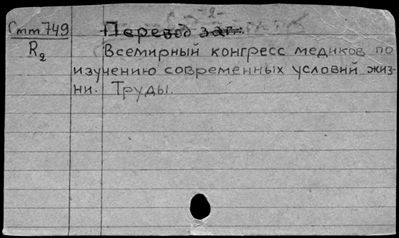 -2-
Стт 749
R2
Перевод заг.
Всемирный конгресс медиков по
изучению современных условий жиз-
ни. Труды.